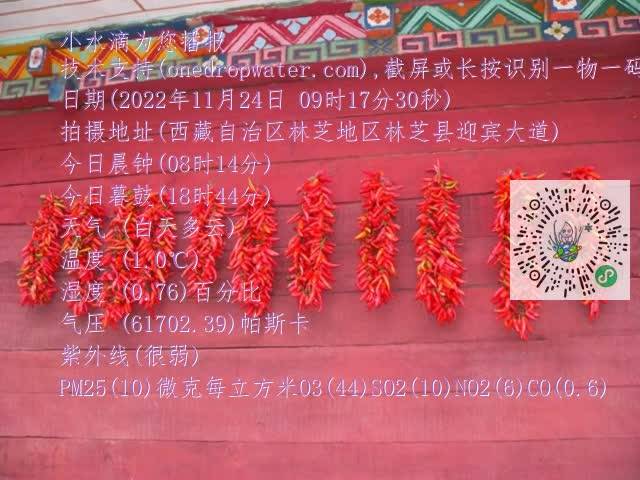 小水滴为您播报
技术支持(onedropwater.com),截屏或长按识别一物一码
日期(2022年11月24日 09时17分30秒)
拍摄地址(西藏自治区林芝地区林芝县迎宾大道)
今日晨钟(08时14分)
今日暮鼓(18时44分)
天气 (白天多云)
温度 (1.0℃)
湿度 (0.76)百分比
气压 (61702.39)帕斯卡
紫外线(很弱)
PM25(10)微克每立方米O3(44)SO2(10)NO2(6)CO(0.6)